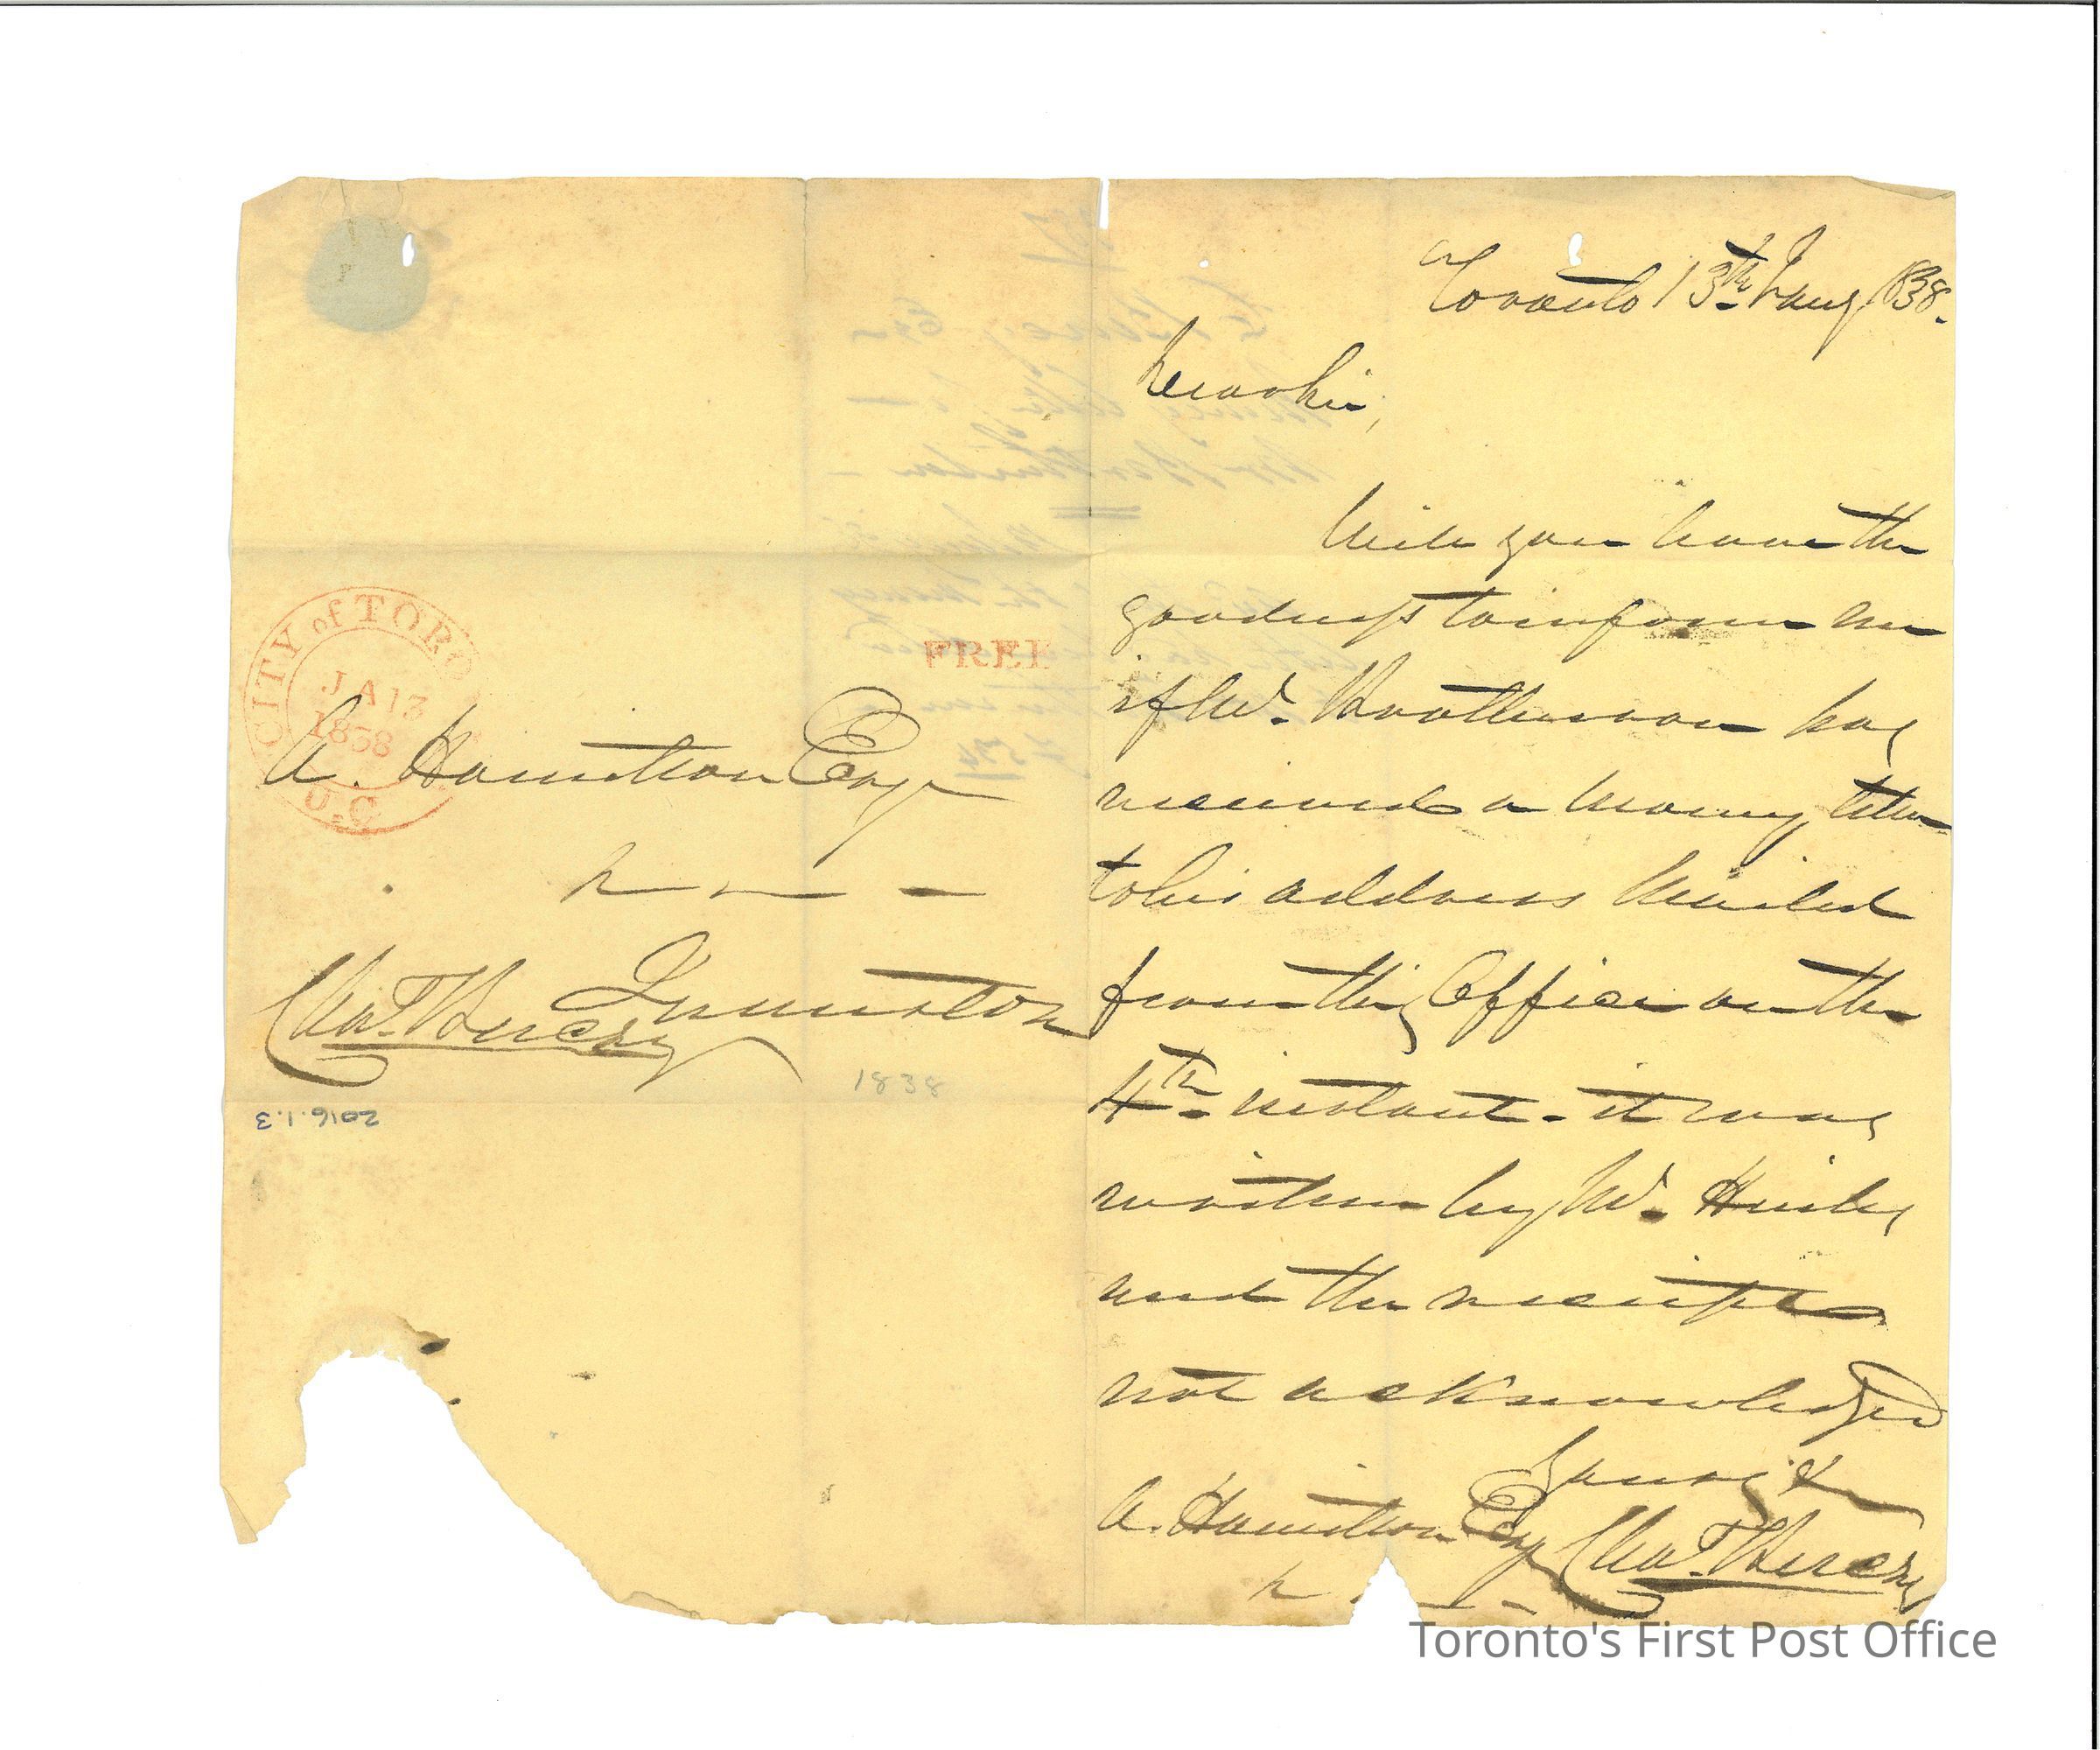 CITY of TORO
JA 13
1838
U.C
FREE
A. Hamilton Esqr
Queenston
Chas. Berczy
1838
2016.1.3
Toronto 13th Jany 1838.
Dear Sir,
Will you have the
goodness to inform me
if Mr. Brotherson has
received a Money letter
to his address Mailed
from this Office on the
4th instant - it was
written by Mr.
and the receipt is
not acknowledged
Yours &c
A. Hamilton Esqr Chas. Berczy
Toronto's First Post Office